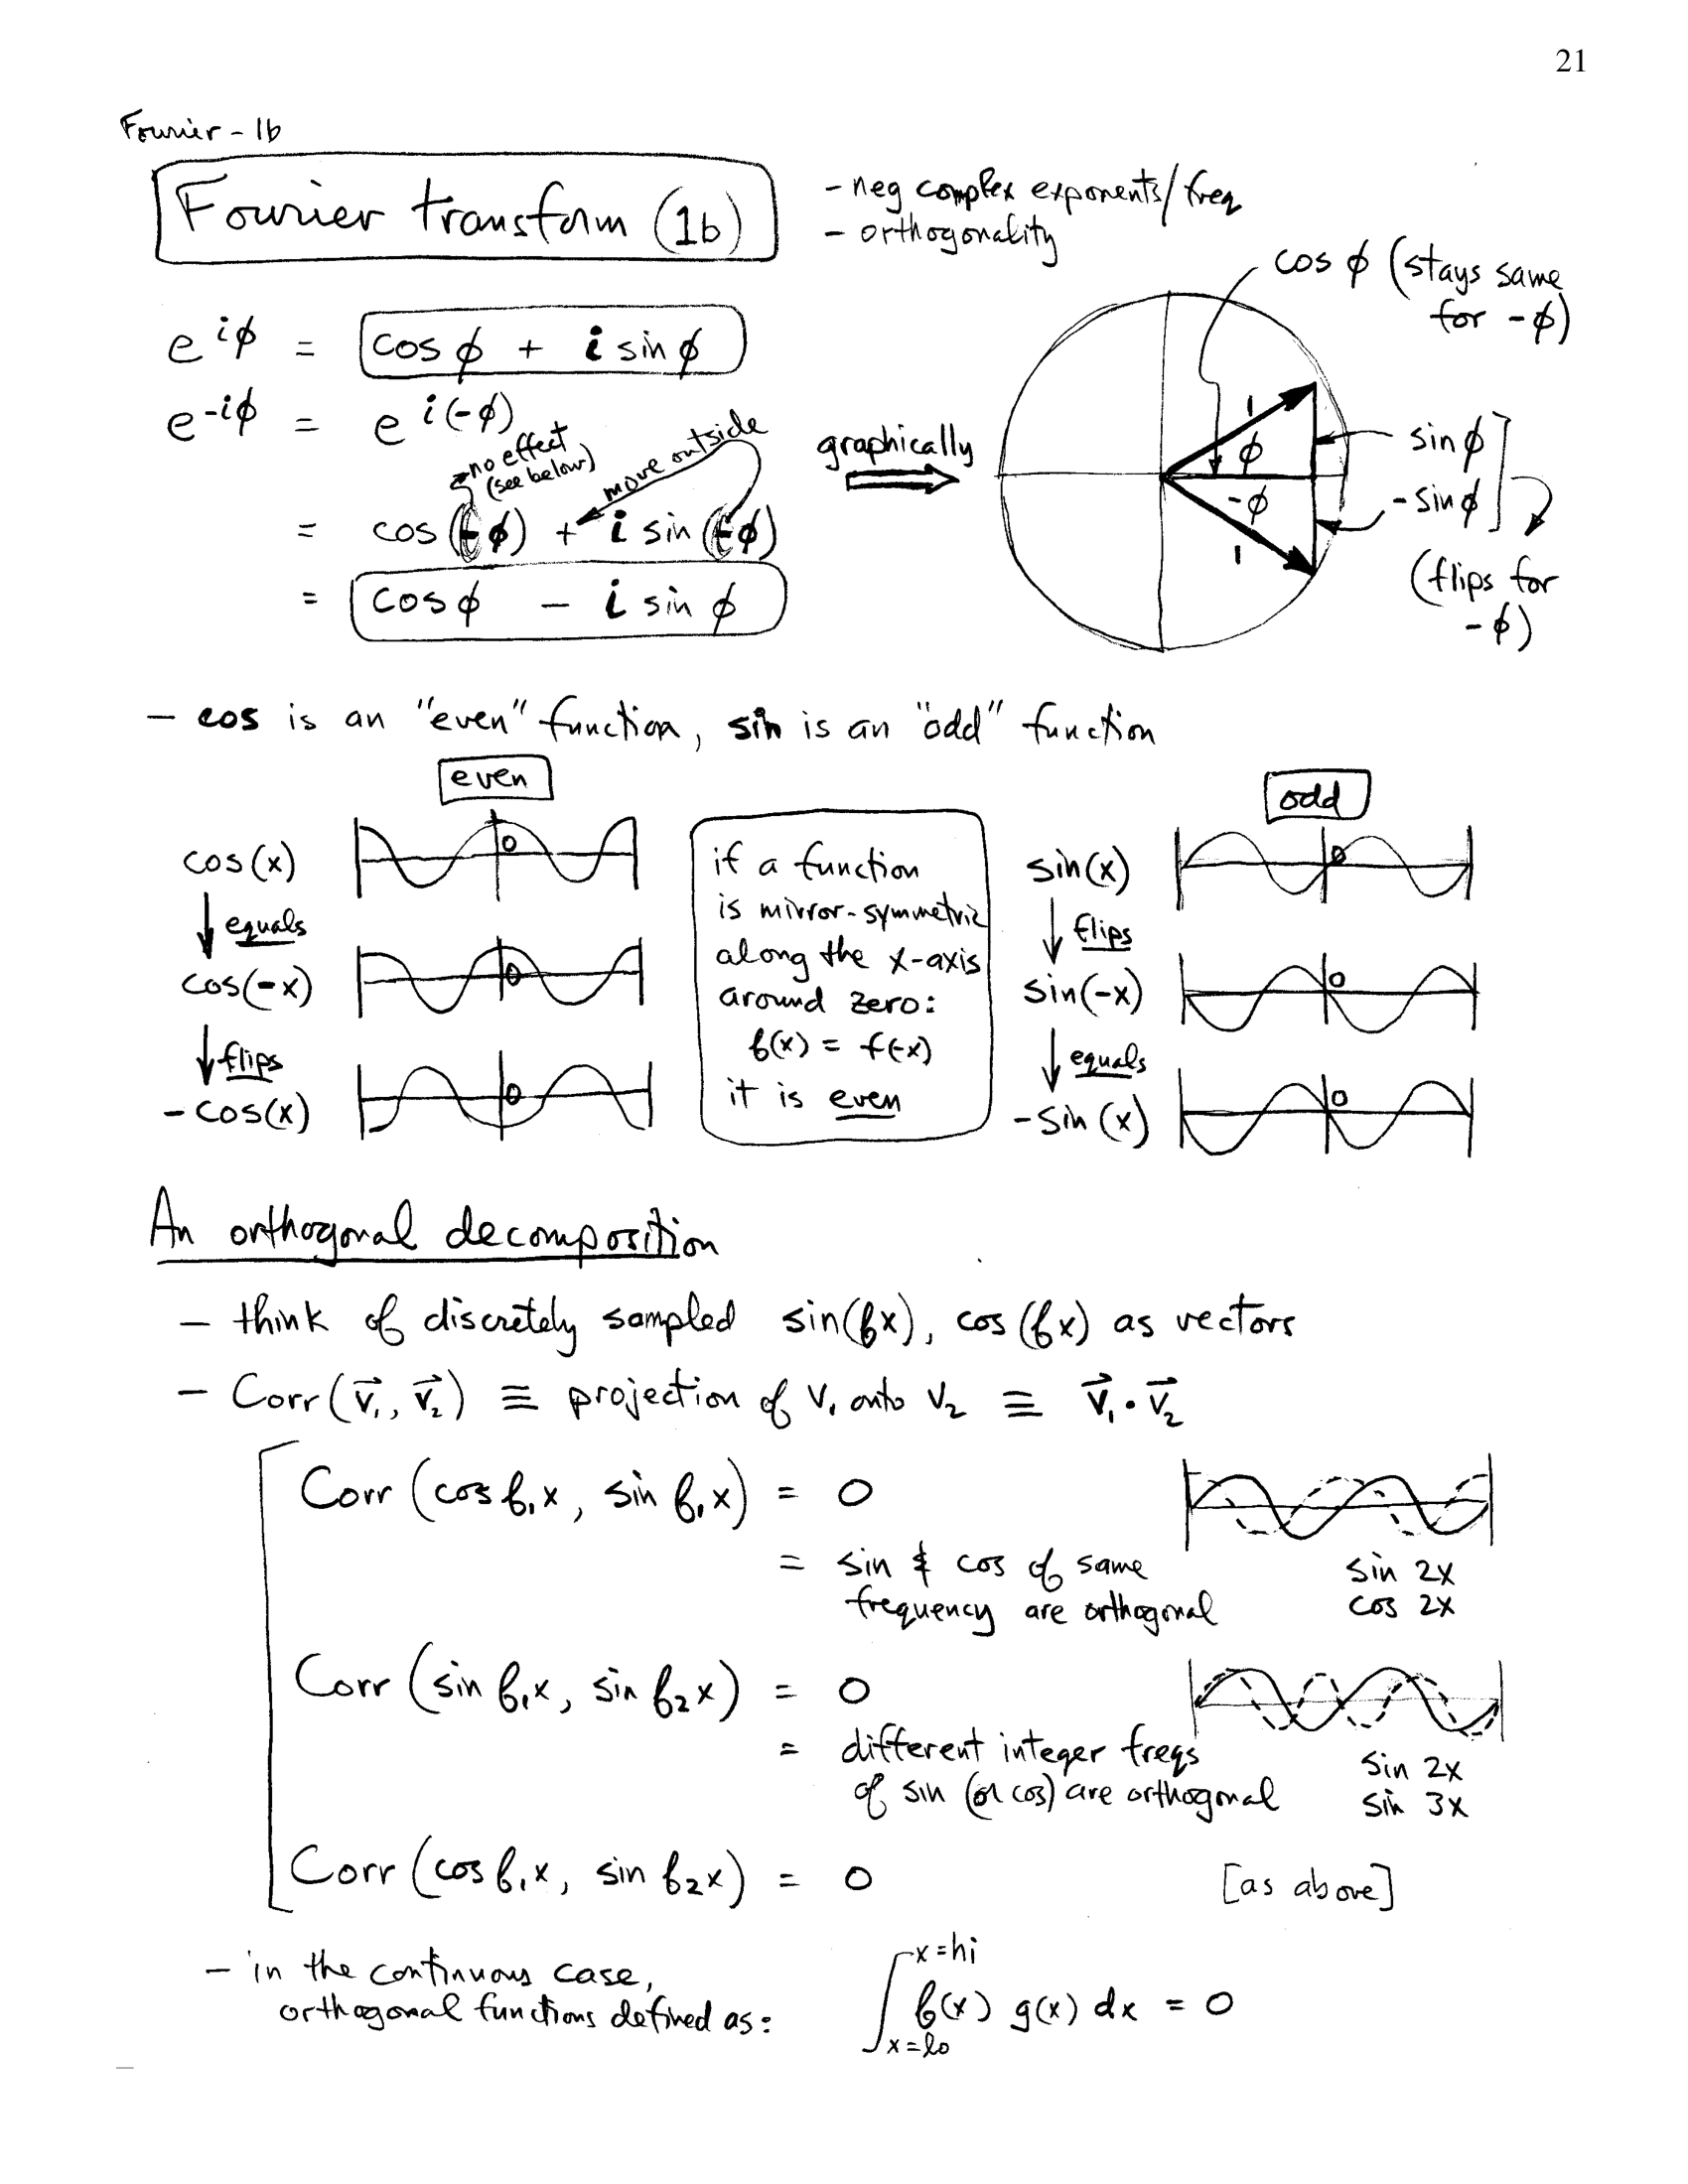 21
Fourier - 1b
Fourier transform (1b)
- neg complex exponents/freq
- orthogonality
e^{iφ} = cos φ + i sin φ
e^{-iφ} = e^{i(-φ)}
no effect
(see below)
move outside
= cos(-φ) + i sin(-φ)
= cos φ - i sin φ
graphically
cos φ (stays same
for -φ)
1
φ
-φ
1
sin φ
- sin φ
(flips for
- φ)
- cos is an "even" function, sin is an "odd" function
even
cos(x)
0
equals
cos(-x)
0
flips
- cos(x)
0
if a function
is mirror-symmetric
along the x-axis
around zero:
f(x) = f(-x)
it is even
odd
sin(x)
0
flips
sin(-x)
0
equals
- sin(x)
0
An orthogonal decomposition
- think of discretely sampled sin(fx), cos(fx) as vectors
- Corr(v⃗₁, v⃗₂) ≡ projection of v₁ onto v₂ ≡ v⃗₁ • v⃗₂
Corr(cos f₁x, sin f₁x) = 0
= sin & cos of same
frequency are orthogonal
sin 2x
cos 2x
Corr(sin f₁x, sin f₂x) = 0
= different integer freqs
of sin (or cos) are orthogonal
sin 2x
sin 3x
Corr(cos f₁x, sin f₂x) = 0
[as above]
- in the continuous case,
orthogonal functions defined as:
∫_{x=lo}^{x=hi} f(x) g(x) dx = 0